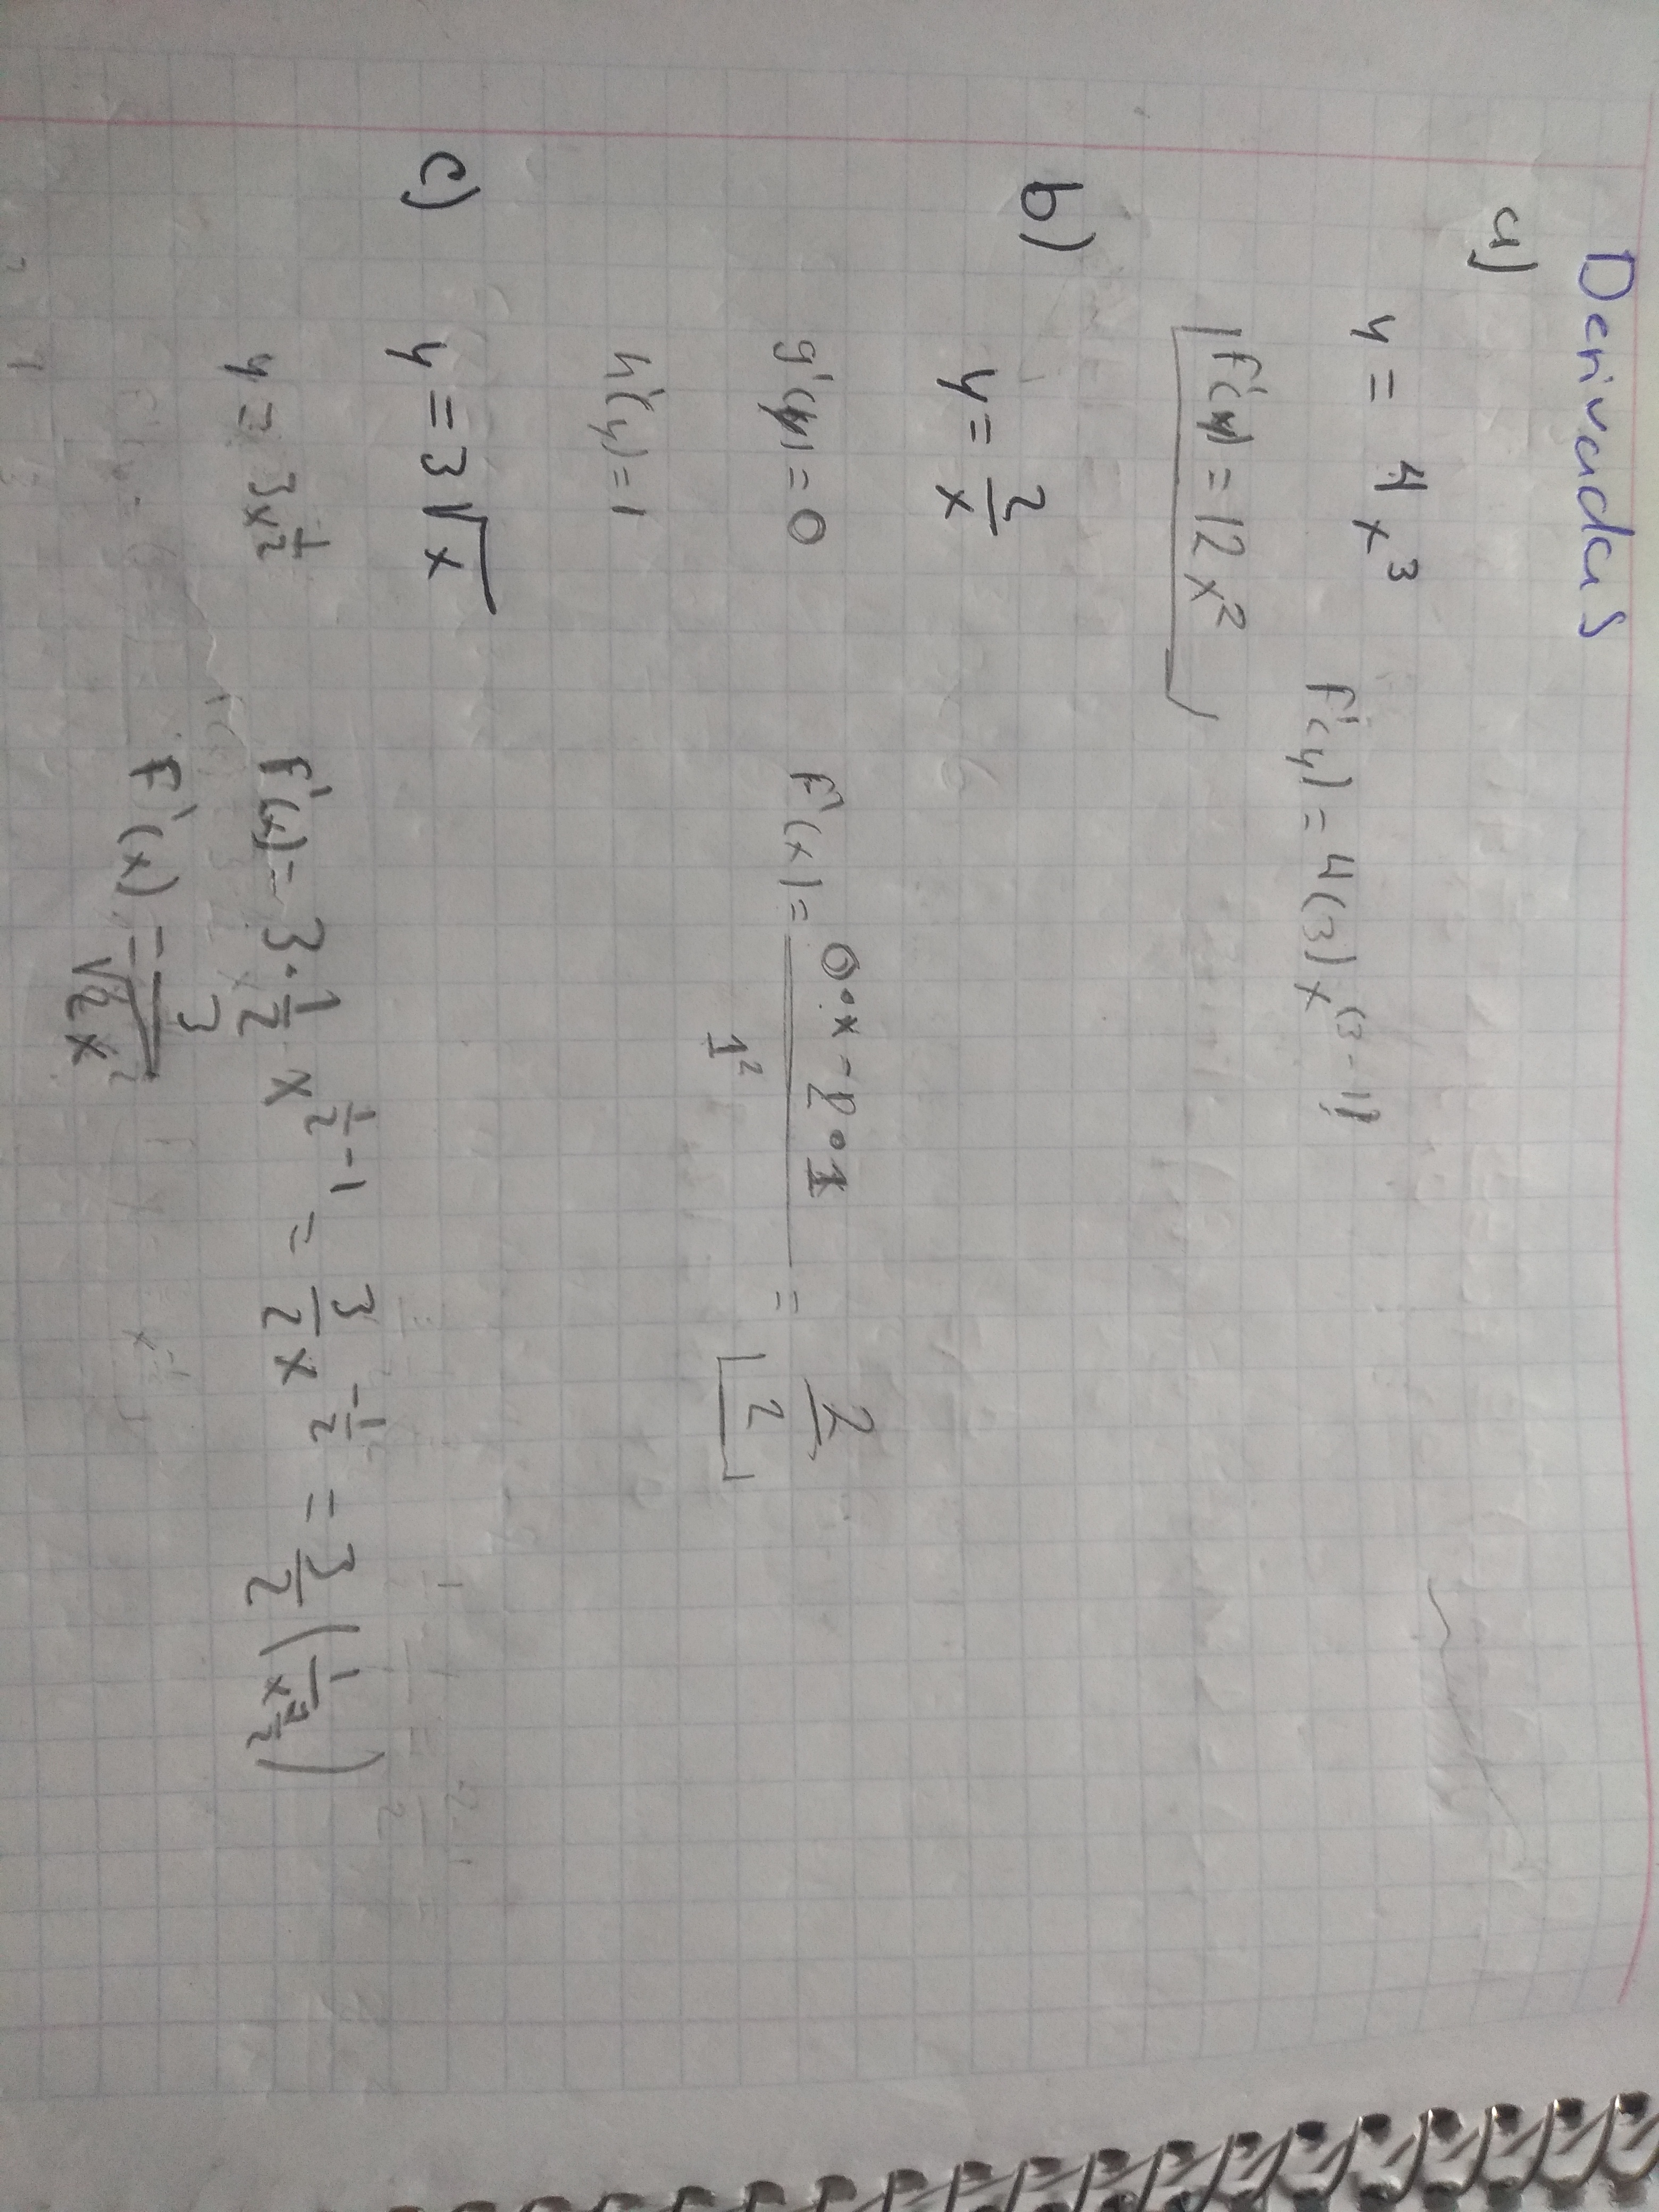 Derivadas
a)
y = 4x³
f'(y) = 4(3)x⁽³⁻¹⁾
f'(y) = 12x²
b)
y = 2/x
g'(y) = 0
f'(x) = (0·x - 2·1)/1² = 2/2
h'(y) = 1
c)
y = 3√x
y = 3x^(1/2)
f'(x) = 3·1/2 x^(1/2 - 1) = 3/2 x^(-1/2) = 3/2 (1/x^(1/2))
F'(x) = 3/√2x²